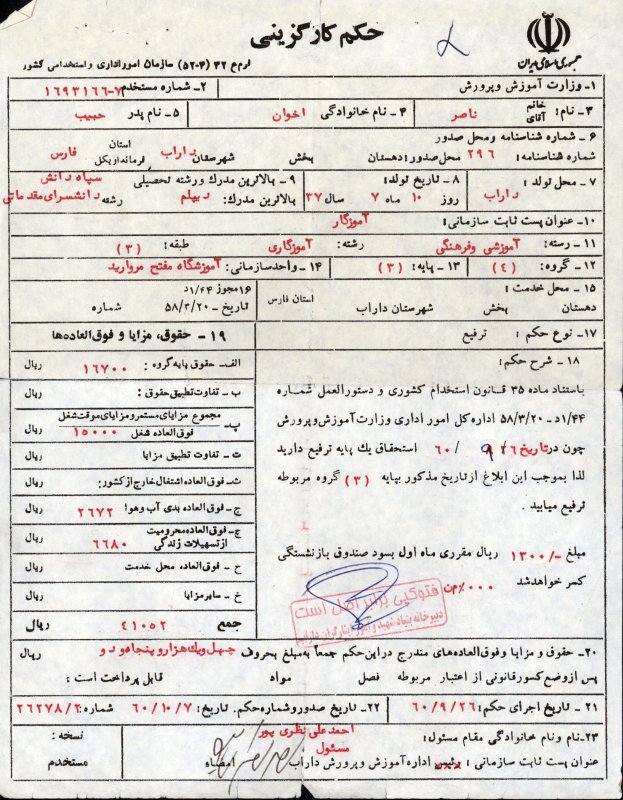 حکم کارگزینی
جمهوری اسلامی ایران
فرم ع ۳۲ (۴-۵۲) سازمان امور اداری و استخدامی کشور
۱- وزارت آموزش و پرورش
۲- شماره مستخدم ۱۶۹۳۱۶۶۰۷
۳- نام: خانم آقای ناصر
۴- نام خانوادگی اخوان
۵- نام پدر حبیب
۶- شماره شناسنامه ومحل صدور
شماره شناسنامه: ۲۹۶ محل صدور: دهستان بخش شهرستان داراب استان فرمانداریکل فارس
۷- محل تولد: داراب
۸- تاریخ تولد: روز ۱۰ ماه ۷ سال ۳۷
۹- بالاترین مدرک ورشته تحصیلی سپاه دانش
بالاترین مدرک: دیپلم رشته دانشسرای مقدماتی
۱۰- عنوان پست ثابت سازمانی: آموزگار
۱۱- رسته: آموزشی وفرهنگی رشته: آموزگاری طبقه: (۳)
۱۲- گروه: (۴) ۱۳- پایه: (۳) ۱۴- واحدسازمانی: آموزشگاه مفتح مروارید
۱۵- محل خدمت:
دهستان بخش شهرستان داراب استان فارس
۱۶ مجوز ۱/۴۴د
تاریخ - ۵۸/۳/۲۰ شماره
۱۷- نوع حکم: ترفیع
۱۸- شرح حکم:
باستناد ماده ۳۵ قانون استخدام کشوری و دستورالعمل شماره
۱/۴۴د - ۵۸/۳/۲۰ اداره کل امور اداری وزارت آموزش و پرورش
چون در تاریخ ۲۶/۹/۶۰ استحقاق یک پایه ترفیع دارید
لذا بموجب این ابلاغ از تاریخ مذکور بپایه (۳) گروه مربوطه
ترفیع میابید.
مبلغ -/۱۳۰۰ ریال مقرری ماه اول بسود صندوق بازنشستگی
کسر خواهد شد
فتوکپی برابر اصل است
دبیرخانه بنیاد شهید و امور ایثارگران داراب
۱۹- حقوق، مزایا و فوق العاده ها
الف- حقوق پایه گروه: ۱۶۷۰۰ ریال
ب- تفاوت تطبیق حقوق: ریال
پ- مجموع مزایای مستمر و مزایای موقت شغل
فوق العاده شغل ۱۵۰۰۰ ریال
ت- تفاوت تطبیق مزایا ریال
ث- فوق العاده اشتغال خارج از کشور: ریال
ج- فوق العاده بدی آب وهوا: ۲۶۷۲ ریال
چ- فوق العاده محرومیت
از تسهیلات زندگی ۶۶۸۰ ریال
ح- فوق العاده محل خدمت ریال
خ- سایر مزایا ریال
جمع ۴۱۰۵۲ ریال
۲۰- حقوق و مزایا وفوق العاده های مندرج در این حکم جمعا به مبلغ بحروف چهل ویک هزار و پنجاه و دو ریال
پس از وضع کسور قانونی از اعتبار مربوطه فصل مواد قابل پرداخت است:
۲۱- تاریخ اجرای حکم: ۶۰/۹/۲۶
۲۲- تاریخ صدور وشماره حکم. تاریخ: ۶۰/۱۰/۷ شماره: ۲۶۲۷۸/۲
۲۳- نام ونام خانوادگی مقام مسئول: احمدعلی نظری پور
مسئول
عنوان پست ثابت سازمانی: رئیس اداره آموزش و پرورش داراب امضاء
نسخه:
مستخدم